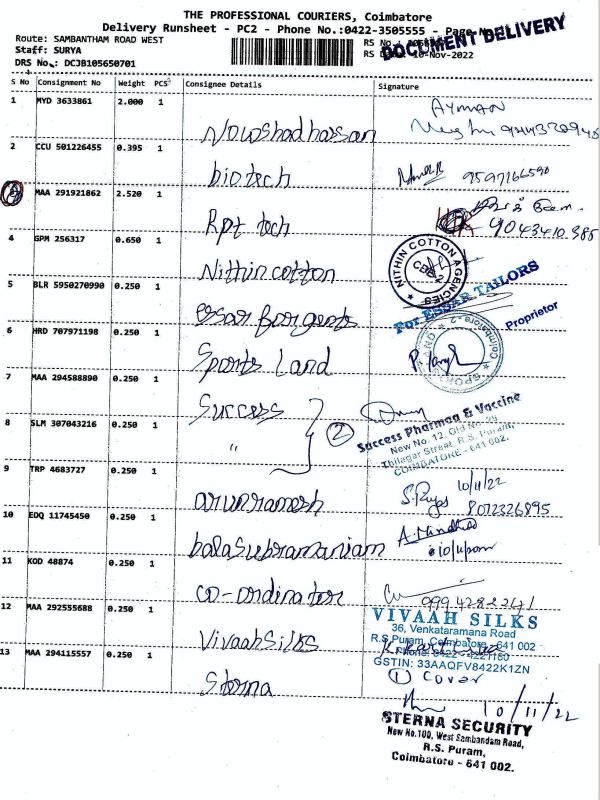 THE PROFESSIONAL COURIERS, Coimbatore
Delivery Runsheet - PC2 - Phone No.:0422-3505555 - Page No
Route: SAMBANTHAM ROAD WEST
Staff: SURYA
DRS No.: DCJB105650701
RS No.
RS Date: 10-Nov-2022
DOCUMENT DELIVERY
S No Consignment No Weight PCS Consignee Details Signature
1 MYD 3633861 2.000 1 Nowshad hassan
AYMAN
2 CCU 501226455 0.395 1 biotech
9597166590
MAA 291921862 2.520 1 Rpt tech
9043410385
4 GPM 256317 0.650 1 Nithin cotton
NITHIN COTTON AGENCIES
CBE-2
5 BLR 5950270990 0.250 1
For ESSAR TAILORS
Proprietor
6 HRD 707971198 0.250 1 Sports Land
7 MAA 294588890 0.250 1 Success
8 SLM 307043216 0.250 1 "
2
Success Pharmaa & Vaccine
New No. 12, Old No. 29
Thilagar Street, R.S. Puram,
COIMBATORE - 641 002.
9 TRP 4683727 0.250 1 arunramesh
10/11/22
8072326895
10 EDQ 11745450 0.250 1 balasubramaniam
11 KOD 48874 0.250 1 co-ordinator
12 MAA 292555688 0.250 1 Vivaah Silks
VIVAAH SILKS
36, Venkataramana Road
R.S.Puram, Coimbatore - 641 002
GSTIN: 33AAQFV8422K1ZN
13 MAA 294115557 0.250 1 Sterna
1 Cover
10/11/22
STERNA SECURITY
New No.100, West Sambandam Road,
R.S. Puram,
Coimbatore - 641 002.